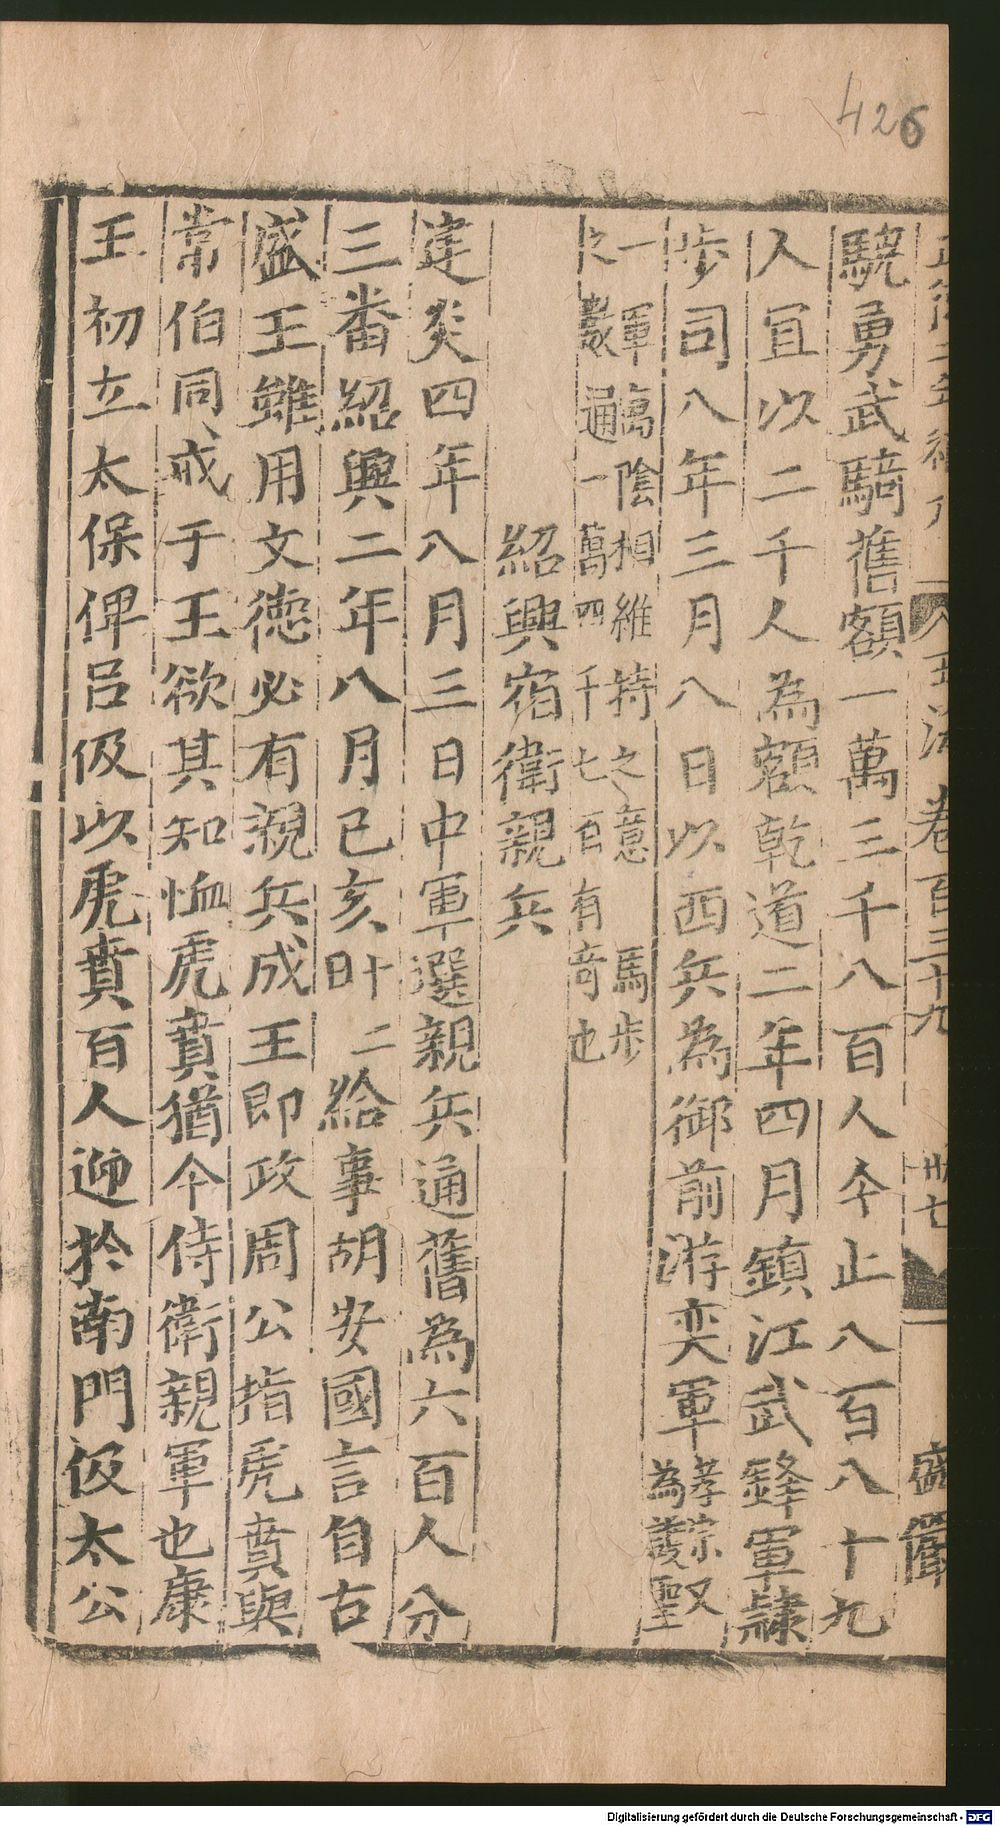 426
驍勇武騎舊額一萬三千八百人今止八百八十九
人宜以二千人為額乾道二年四月鎮江武鋒軍隷
步司八年三月八日以西兵為御前游奕軍孝宗又為護聖
一軍萬陰相維持之意馬步
之數通一萬四千七百有奇也
紹興宿衛親兵
建炎四年八月三日中軍選親兵通舊為六百人分
三番紹興二年八月己亥廿二日給事胡安國言自古
盛王雖用文德必有親兵成王即政周公指虎賁與
常伯同戒于王欲其知恤虎賁猶今侍衛親軍也康
王初立太保俾呂伋以虎賁百人迎於南門伋太公
卷百三十九
卅七
Digitalisierung gefördert durch die Deutsche Forschungsgemeinschaft - DFG